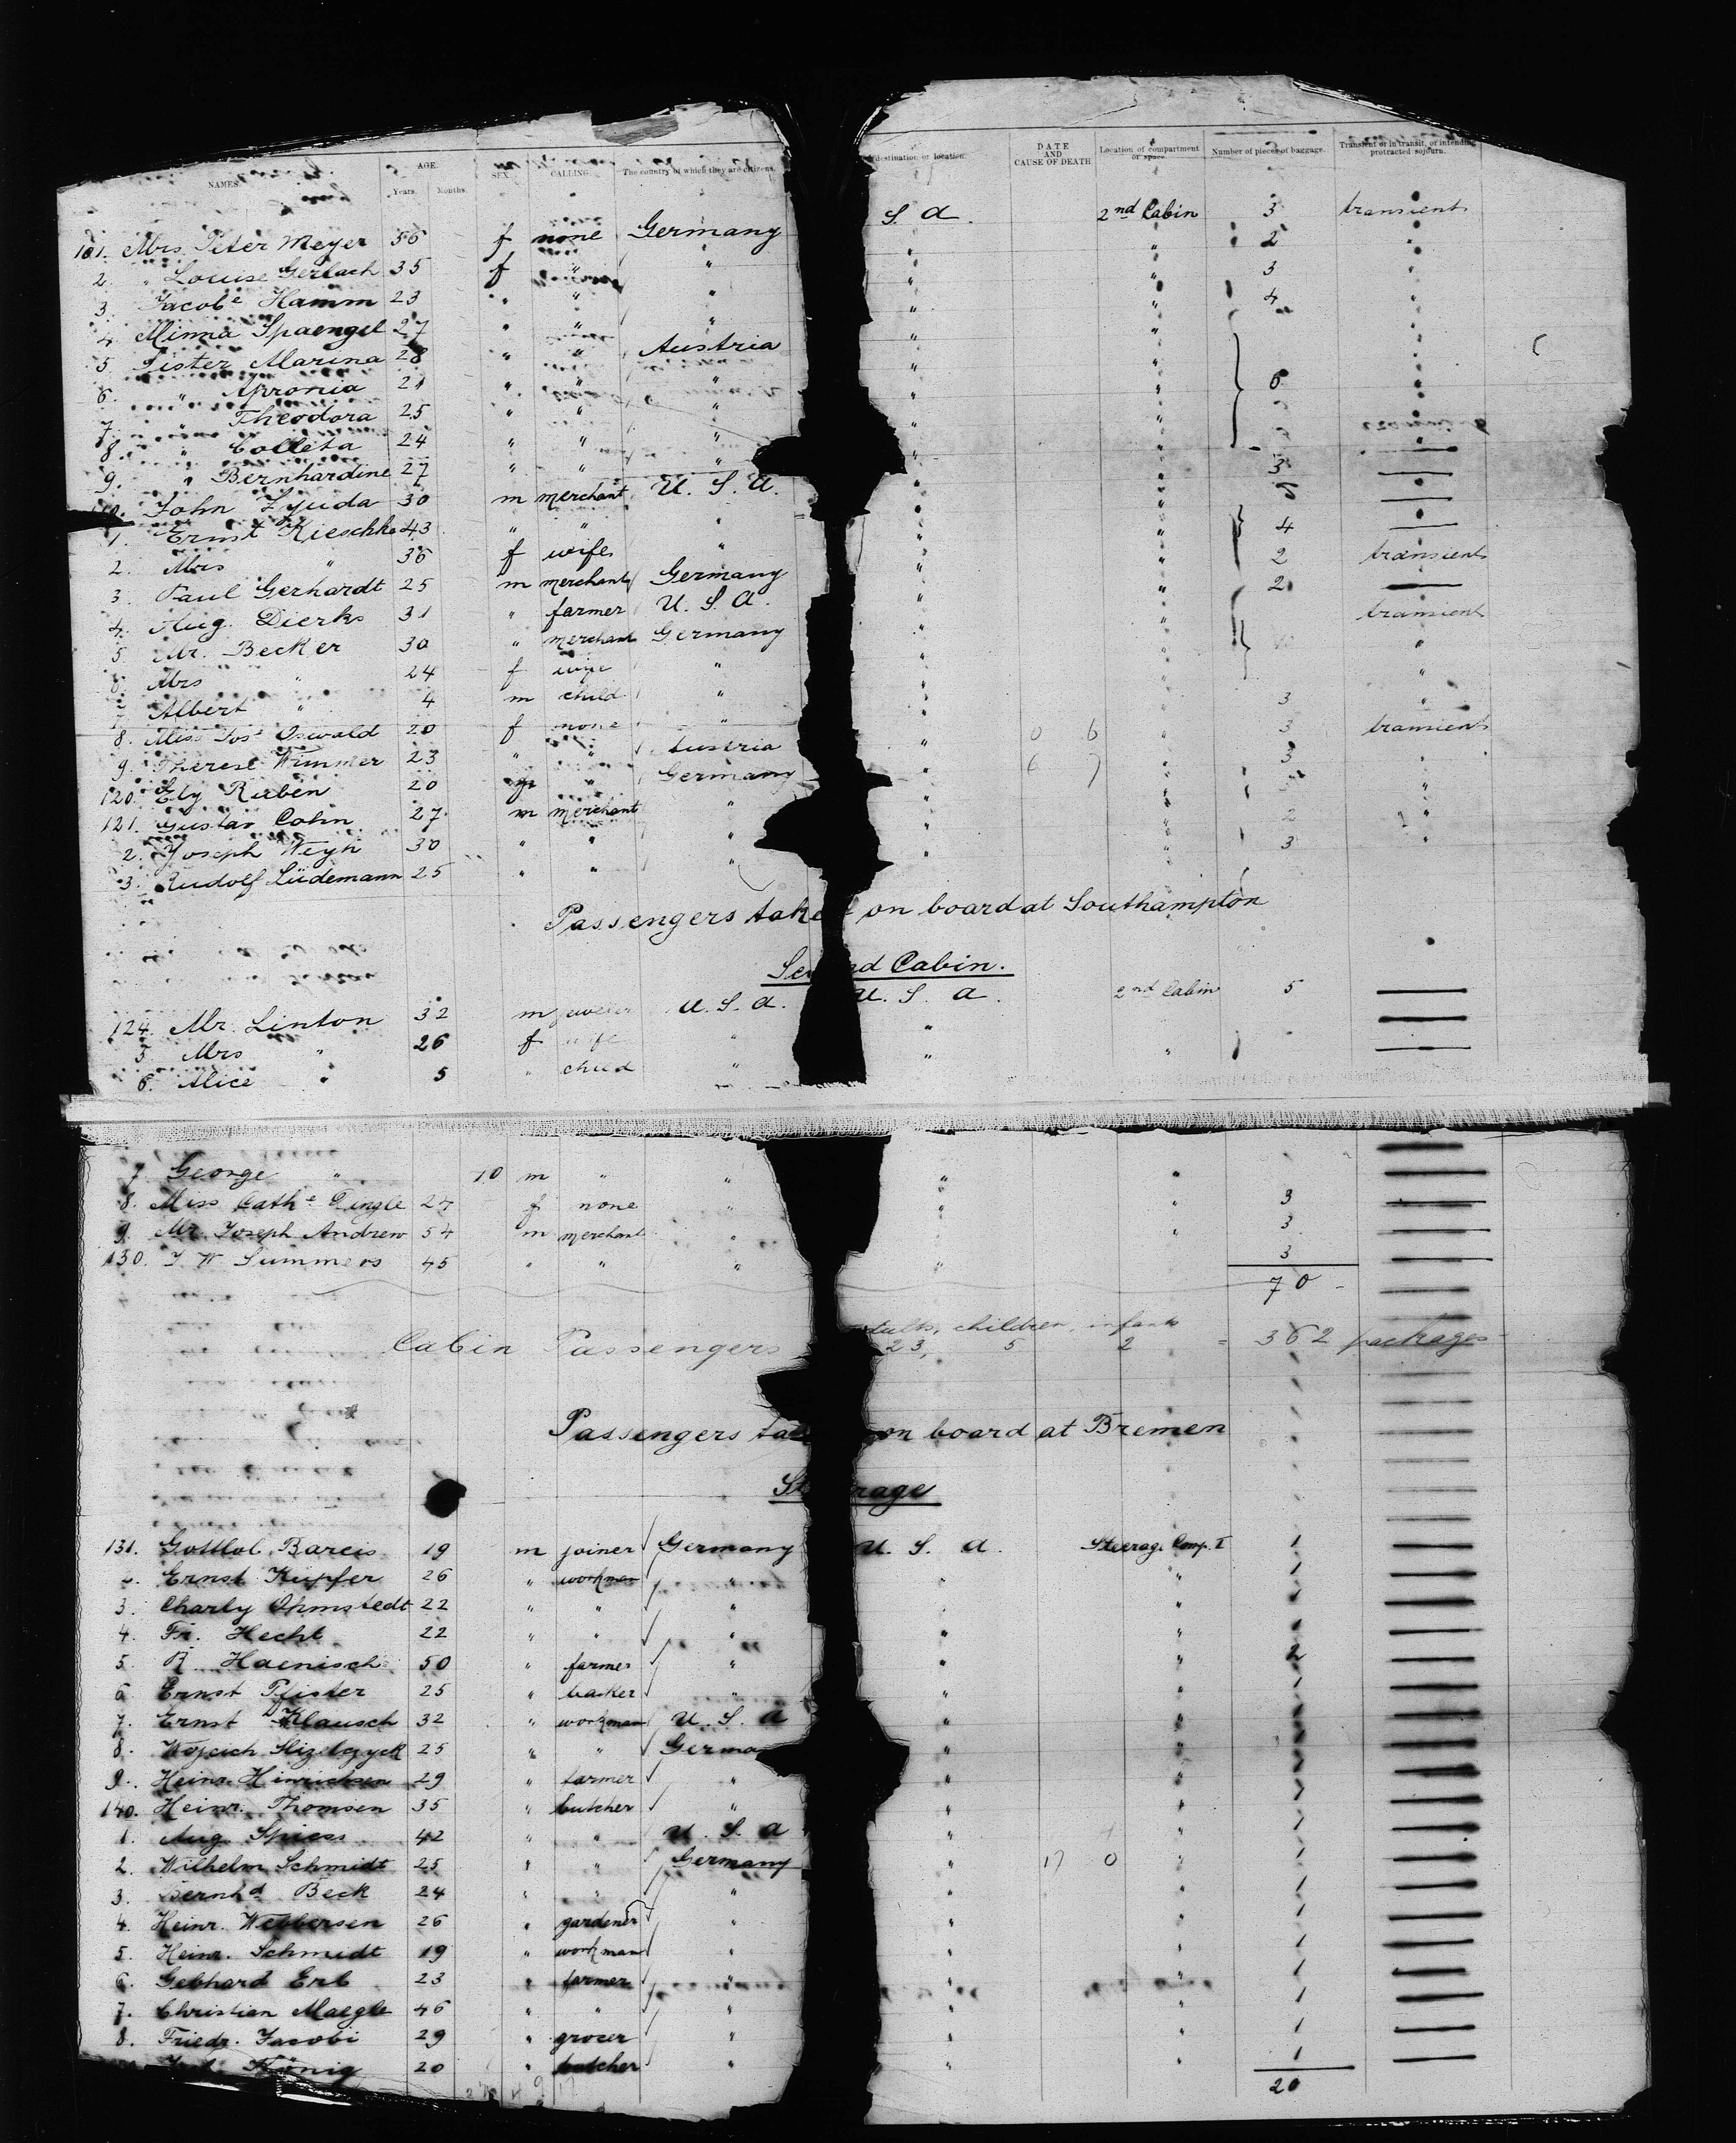 NAMES. AGE. Years. Months. SEX. CALLING. The country of which they are citizens. destination or location. DATE AND CAUSE OF DEATH Location of compartment or space. Number of pieces of baggage. Transient or in transit, or intending protracted sojourn.
101. Mrs. Peter Meyer 56 f none Germany S. A. 2nd Cabin 3 transient
2. " Louise Gerlach 35 f " " " " 2 "
3. Jacobe Hamm 23 " " " " " 3 "
4. Minna Spaengel 27 " " " " " 4 "
5. Sister Marina 28 " " Austria " " "
6. " Apronia 21 " " " " " 6 "
7. " Theodora 25 " " " " " "
8. " Colleta 24 " " " " " "
9. " Bernhardine 27 " " " " " "
110. John Zyuda 30 m merchant U. S. A. " " 3 —
1. Ernst Kieschke 43 " " " " " —
2. Mrs " 36 f wife " " " 4 —
3. Paul Gerhardt 25 m merchant Germany " " 2 transient
4. Aug. Dierks 31 " farmer U. S. A. " " 2 —
5. Mr. Becker 30 " merchant Germany " " transient
6. Mrs " 24 f wife " " " "
7. Albert " 4 m child " " " "
8. Miss Jose Oswald 20 f none " " " 3 "
9. Therese Wimmer 23 " " Austria " " 3 transient
120. Ely Ruben 20 " Germany " " 3 "
121. Gustav Cohn 27 m merchant " " " "
2. Joseph Weyh 30 " " " " " 2 "
3. Rudolf Lüdemann 25 " " " " " 3 "
Passengers taken on board at Southampton
Second Cabin.
124. Mr. Linton 32 m jeweler U. S. A. U. S. A. 2nd Cabin 5 —
5. Mrs " 26 f wife " " —
6. Alice " 5 " child " " " —
7. George " 10 m " " " " —
8. Miss Cathe Pingle 27 f none " " " 3 —
9. Mr. Joseph Andrew 54 m merchant " " " 3 —
130. J W Summers 45 " " " " 3 —
70
Cabin Passengers adults, children, infants
23, 5 2 = 362 packages
Passengers taken on board at Bremen
Steerage
131. Gottlob Bareis 19 m joiner Germany U. S. A. Steerage Comp. I 1 —
2. Ernst Kupfer 26 " workman " " " 1 —
3. Charly Ohmstedt 22 " " " " " 1 —
4. Fr. Hecht 22 " " " " " 1 —
5. R. Haenisch 50 " farmer " " " 2 —
6. Ernst Pfister 25 " basker " " " 1 —
7. Ernst Klausch 32 " workman U. S. A " " 1 —
8. 25 " " Germa " " 1 —
9. Heinr. Hinrichsen 29 " farmer " " " 1 —
140. Heinr. Thomsen 35 " butcher " " " 1 —
1. Aug. Spiess 42 " " U. S. A " " 1 —
2. Wilhelm Schmidt 25 " " Germany " 17 0 " 1 —
3. Bernhd Beck 24 " " " " " 1 —
4. Heinr. Webbersen 26 " gardener " " " 1 —
5. Heinr. Schmidt 19 " workman " " " 1 —
6. Gebhard Erb 23 " farmer " " " 1 —
7. Christian Maegle 46 " " " " " 1 —
8. Friedr. Jacobi 29 " grocer " " " 1 —
König 20 " butcher " " " 1 —
20